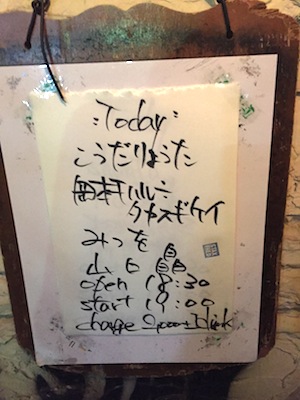 :Today:
こうだりょうた
タカスギケイ
みつを
open 18:30
start 19:00
charge 2,000+1drink